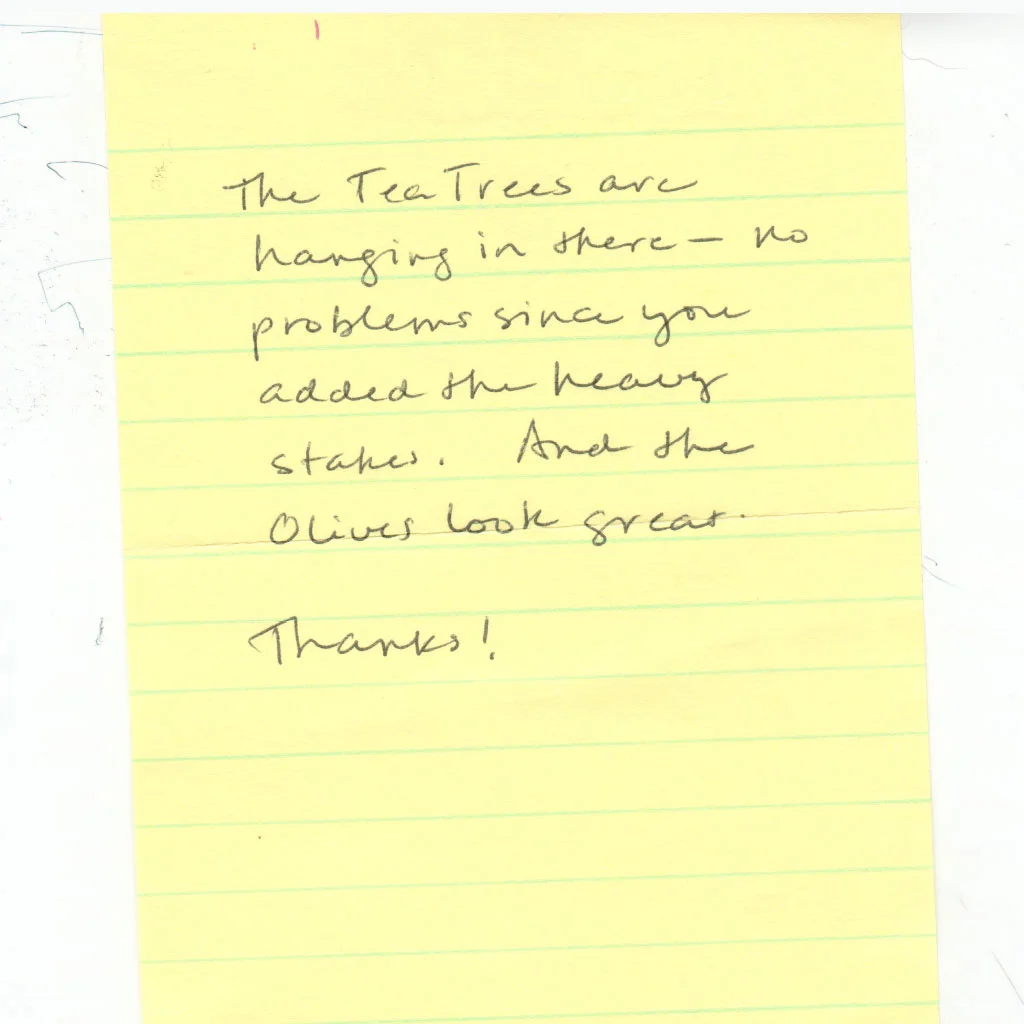 The Tea Trees are
hanging in there — no
problems since you
added the heavy
stakes. And the
Olives look great.
Thanks!